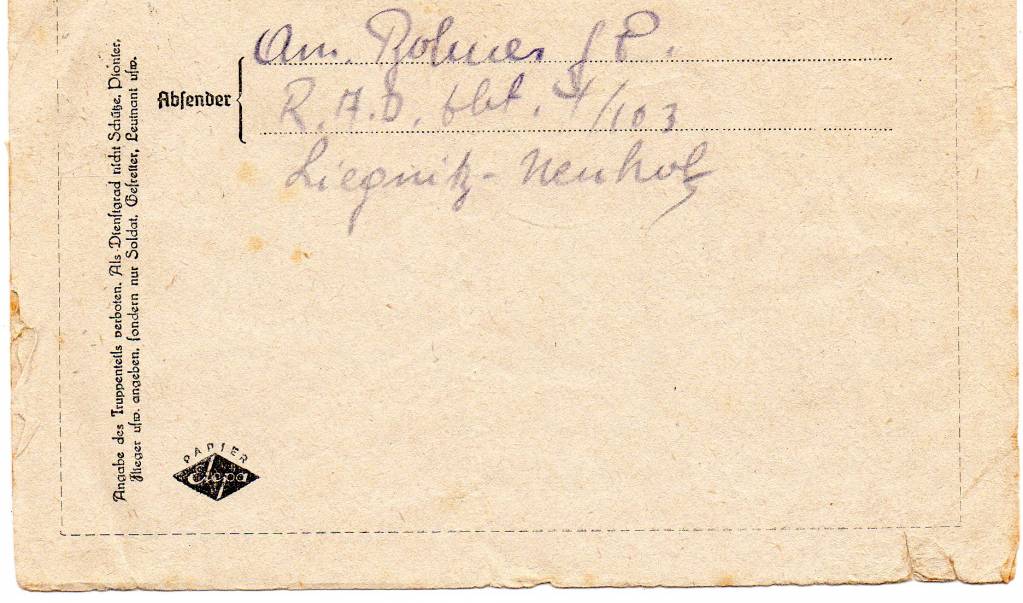 Am. Bolmer f P.
Absender
R.A.D. Abt. 4/103
Liegnitz-Neuhof
Angabe des Truppenteils verboten. Als Dienstgrad nicht Schütze, Pionier,
Flieger usw. angeben, sondern nur Soldat, Gefreiter, Leutnant usw.
PAPIER